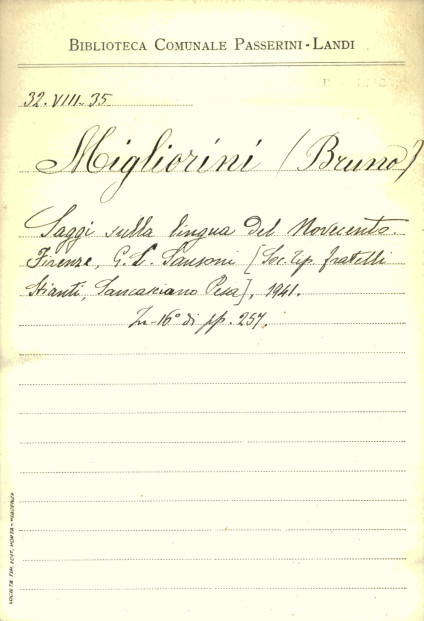 BIBLIOTECA COMUNALE PASSERINI-LANDI
32. VIII. 35
Migliorini (Bruno)
Saggi sulla lingua del Novecento.
Firenze, G. C. Sansoni [Soc. tip. fratelli
Stianti, Sancasciano Pesa], 1941.
In-16° di pp. 257.